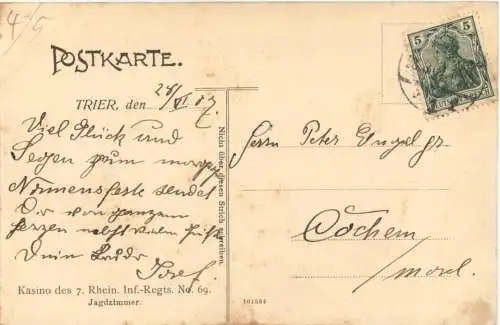 4-/5
POSTKARTE.
TRIER, den 28/VI 07.
Viel Glück und
Segen zum morg.
Namensfeste sendet
Dir von ganzem
Herzen nebst vielen Grüßen
Dein Bruder
Josef.
Kasino des 7. Rhein. Inf.-Regts. No. 69.
Jagdzimmer.
Nicht über diesen Strich schreiben.
5 5
Herrn Peter Engel
Cochem
/Mosel.
101564